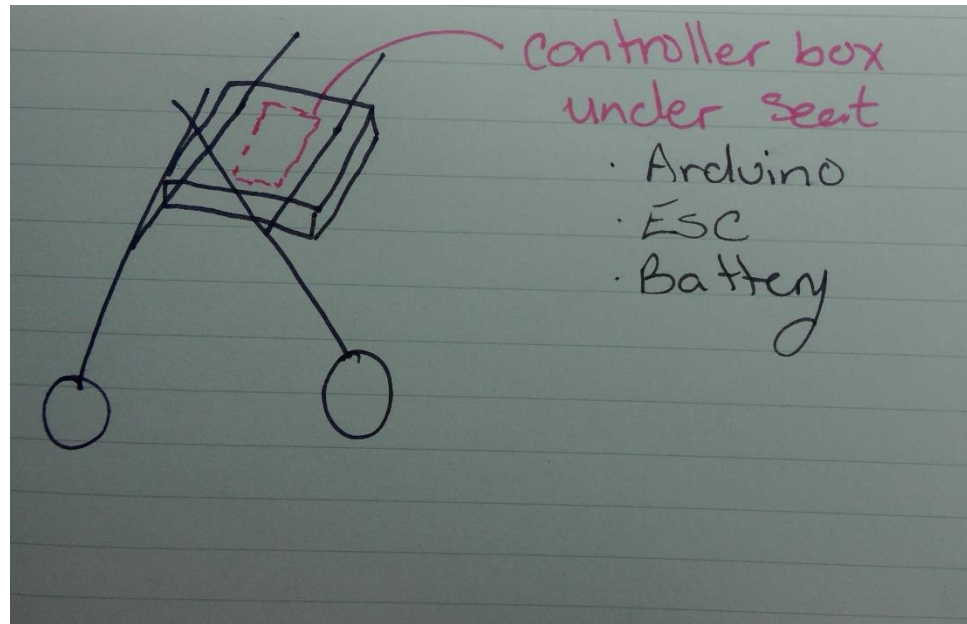 controller box
under seat
· Arduino
· ESC
· Battery